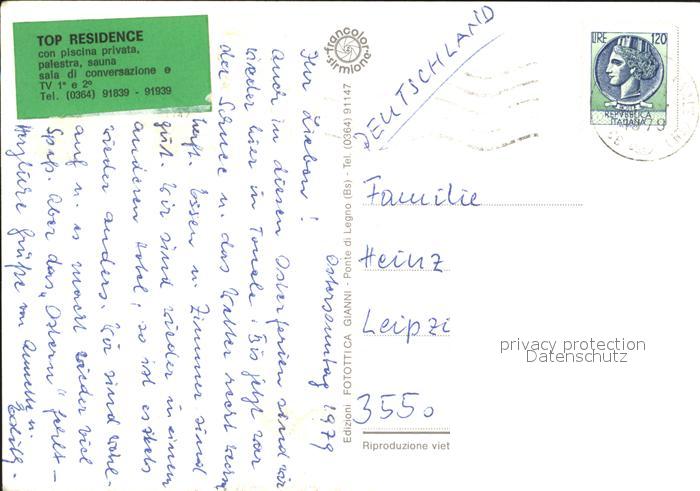 TOP RESIDENCE
con piscina privata,
palestra, sauna
sala di conversazione e
TV 1° e 2°
Tel. (0364) 91839 - 91939
Ostersonntag 1979
Ihr Lieben!
Auch in diesen Osterferien sind wir
wieder hier in Tonale! Bis jetzt war
der Schnee u. das Wetter recht
haft. Essen u. Zimmer sind
gut. Wir sind wieder in einem
anderen Hotel, so ist es stets
wieder anders. Wir sind wohl-
auf u. es macht wieder viel
Spaß. Aber das "Ostern" fehlt -
Herzliche Grüße von Annette u.
Edith.
francolor
sirmione
Edizioni FOTOTTICA GIANNI - Ponte di Legno (Bs) - Tel. (0364) 91147
DEUTSCHLAND
LIRE 120
REPVBBLICA
ITALIANA
79
Familie
Heinz
Leipzi
3550
Riproduzione viet
privacy protection
Datenschutz